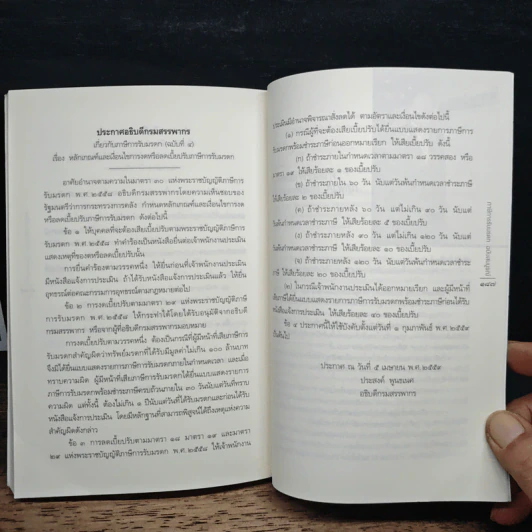 ประกาศอธิบดีกรมสรรพากร
เกี่ยวกับภาษีการรับมรดก (ฉบับที่ ๔)
เรื่อง หลักเกณฑ์และเงื่อนไขการงดหรือลดเบี้ยปรับภาษีการรับมรดก
อาศัยอำนาจตามความในมาตรา ๓๐ แห่งพระราชบัญญัติภาษีการ
รับมรดก พ.ศ.๒๕๕๘ อธิบดีกรมสรรพากรโดยความเห็นชอบของ
รัฐมนตรีว่าการกระทรวงการคลัง กำหนดหลักเกณฑ์และเงื่อนไขการงด
หรือลดเบี้ยปรับภาษีการรับมรดก ดังต่อไปนี้
ข้อ ๑ ให้บุคคลที่จะต้องเสียเบี้ยปรับตามพระราชบัญญัติภาษีการ
รับมรดก พ.ศ.๒๕๕๘ ทำคำร้องเป็นหนังสือยื่นต่อเจ้าพนักงานประเมิน
แสดงเหตุที่ขอให้งดหรือลดเบี้ยปรับนั้น
การยื่นคำร้องตามวรรคหนึ่ง ให้ยื่นก่อนที่เจ้าพนักงานประเมิน
จะได้แจ้งการประเมิน ถ้าได้รับหนังสือแจ้งการประเมินแล้ว ให้ยื่น
อุทธรณ์ต่อคณะกรรมการอุทธรณ์ตามกฎหมายต่อไป
ข้อ ๒ การงดเบี้ยปรับตามมาตรา ๒๙ แห่งพระราชบัญญัติภาษี
การรับมรดก พ.ศ.๒๕๕๘ ให้กระทำได้โดยได้รับอนุมัติจากอธิบดี
กรมสรรพากร หรือจากผู้ที่อธิบดีกรมสรรพากรมอบหมาย
การงดเบี้ยปรับตามวรรคหนึ่ง ต้องเป็นกรณีที่ผู้มีหน้าที่เสียภาษี
การรับมรดกสำคัญผิดว่าทรัพย์มรดกที่ได้รับมีมูลค่าไม่เกิน ๑๐๐ ล้านบาท
จึงมิได้ยื่นแบบแสดงรายการภาษีการรับมรดกภายในกำหนดเวลา และเมื่อ
ทราบความผิด ผู้มีหน้าที่เสียภาษีการรับมรดกได้ยื่นแบบแสดงรายการภาษี
การรับมรดกพร้อมชำระภาษีครบถ้วนภายใน ๓๐ วันนับแต่วันที่ทราบ
ความผิด แต่ทั้งนี้ ต้องไม่เกิน ๑ ปีนับแต่วันที่ได้รับมรดกและก่อนได้รับ
หนังสือแจ้งการประเมิน โดยมีหลักฐานที่สามารถพิสูจน์ได้ถึงเหตุแห่งความ
สำคัญผิดดังกล่าว
ข้อ ๓ การลดเบี้ยปรับตามมาตรา ๑๘ มาตรา ๑๙ และมาตรา
๒๙ แห่งพระราชบัญญัติภาษีการรับมรดก พ.ศ.๒๕๕๘ ให้เจ้าพนักงาน
ประเมินมีอำนาจพิจารณาสั่งลดได้ ตามอัตราและเงื่อนไขดังต่อไปนี้
(๑) กรณีผู้ที่จะต้องเสียเบี้ยปรับได้ยื่นแบบแสดงรายการภาษีการ
รับมรดกพร้อมชำระภาษีก่อนออกหมายเรียก ให้เสียเบี้ยปรับ ดังนี้
(ก) ถ้าชำระภายในกำหนดเวลาตามมาตรา ๑๘ วรรคสอง หรือ
มาตรา ๑๙ ให้เสียร้อยละ ๑ ของเบี้ยปรับ
(ข) ถ้าชำระภายใน ๖๐ วัน นับแต่วันพ้นกำหนดเวลาชำระภาษี
ให้เสียร้อยละ ๒ ของเบี้ยปรับ
(ค) ถ้าชำระภายหลัง ๖๐ วัน แต่ไม่เกิน ๙๐ วัน นับแต่
วันพ้นกำหนดเวลาชำระภาษี ให้เสียร้อยละ ๕ ของเบี้ยปรับ
(ง) ถ้าชำระภายหลัง ๙๐ วัน แต่ไม่เกิน ๑๒๐ วัน นับแต่วัน
พ้นกำหนดเวลาชำระภาษี ให้เสียร้อยละ ๑๐ ของเบี้ยปรับ
(จ) ถ้าชำระภายหลัง ๑๒๐ วัน นับแต่วันพ้นกำหนดเวลาชำระ
ภาษี ให้เสียร้อยละ ๒๐ ของเบี้ยปรับ
(๒) ในกรณีเจ้าพนักงานประเมินได้ออกหมายเรียก และผู้มีหน้าที่
เสียภาษีได้ยื่นแบบแสดงรายการภาษีการรับมรดกพร้อมชำระภาษีก่อนได้รับ
หนังสือแจ้งการประเมิน ให้เสียร้อยละ ๔๐ ของเบี้ยปรับ
ข้อ ๔ ประกาศนี้ให้ใช้บังคับตั้งแต่วันที่ ๑ กุมภาพันธ์ พ.ศ.๒๕๕๙
เป็นต้นไป
ประกาศ ณ วันที่ ๕ เมษายน พ.ศ.๒๕๕๙
ประสงค์ พูนธเนศ
อธิบดีกรมสรรพากร